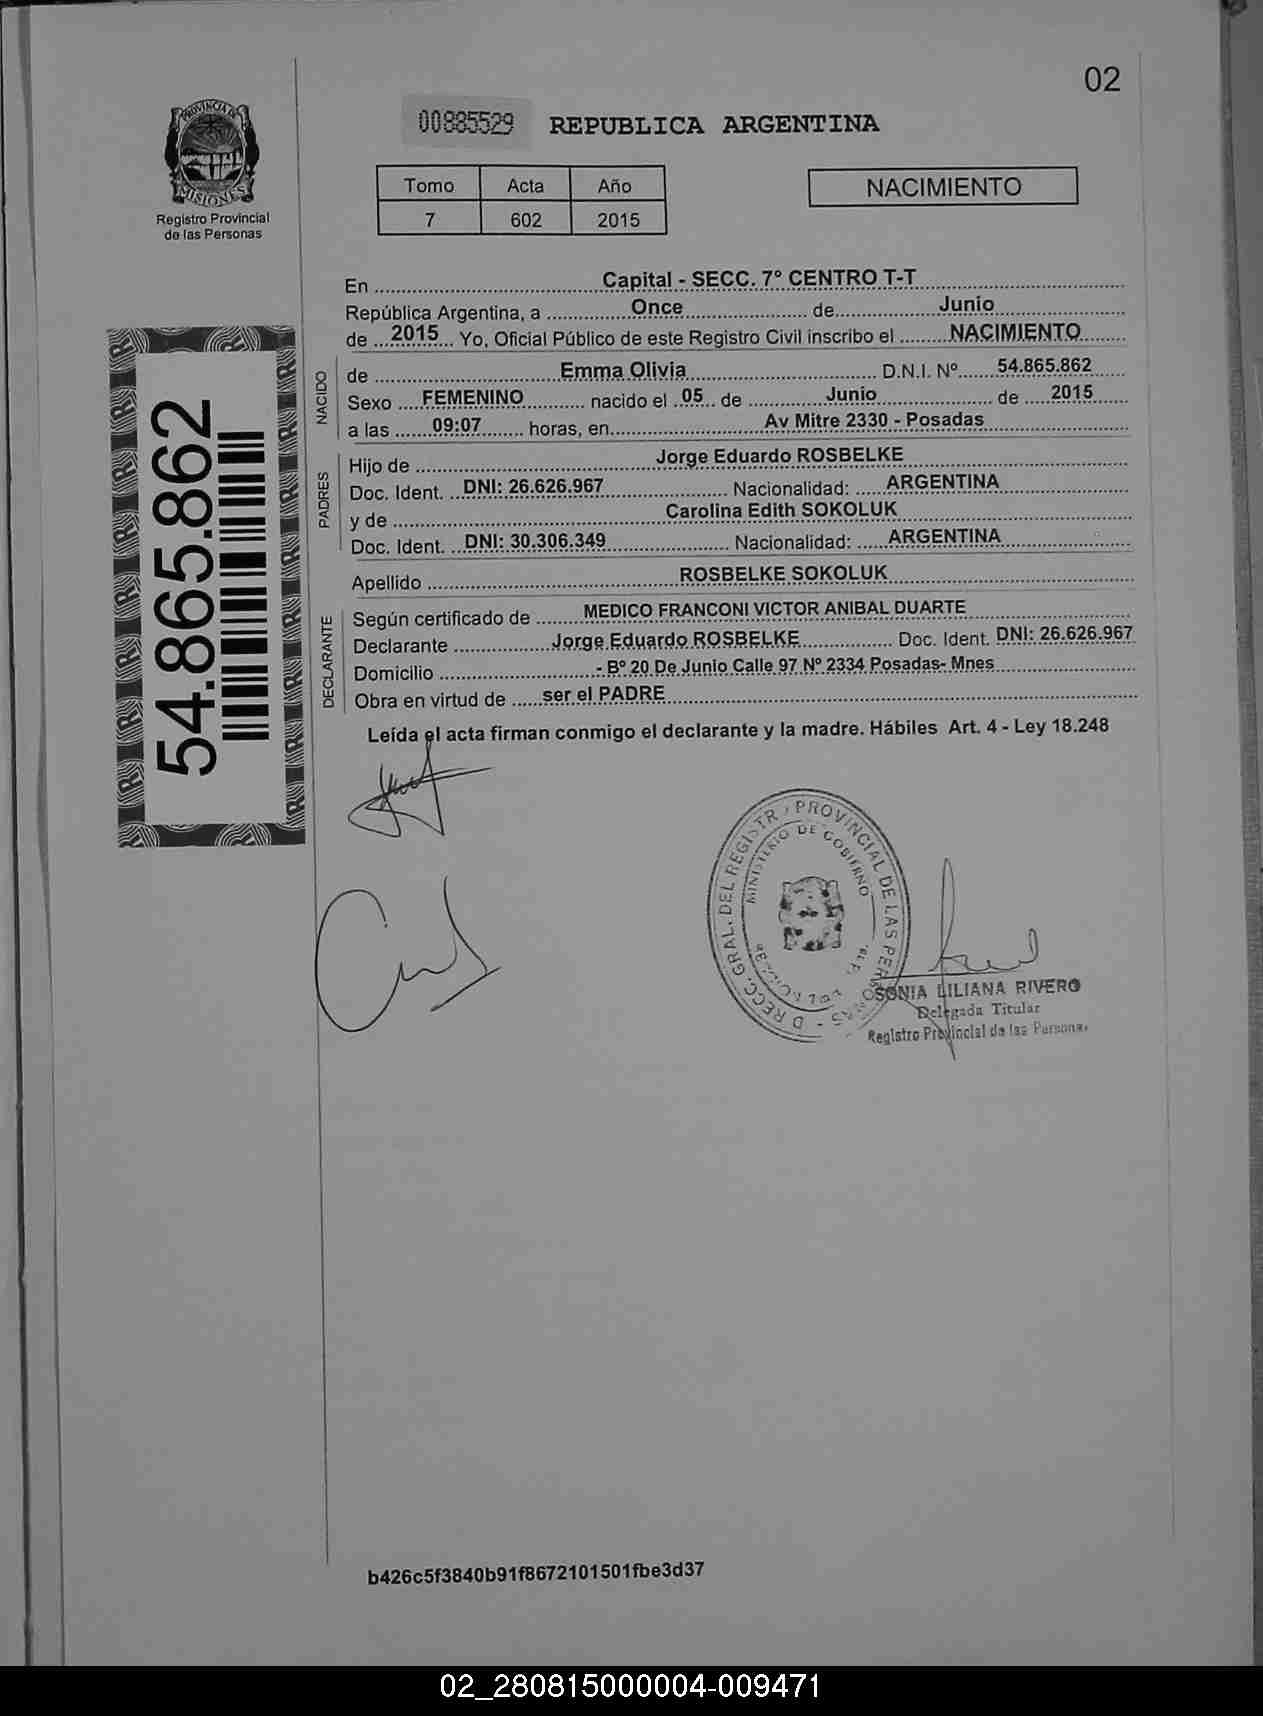 02
PROVINCIA DE
MISIONES
Registro Provincial
de las Personas
00885529 REPUBLICA ARGENTINA
Tomo Acta Año
7 602 2015
NACIMIENTO
En Capital - SECC. 7° CENTRO T-T
República Argentina, a Once de Junio
de 2015 Yo, Oficial Público de este Registro Civil inscribo el NACIMIENTO
NACIDO
de Emma Olivia D.N.I. Nº 54.865.862
Sexo FEMENINO nacido el 05 de Junio de 2015
a las 09:07 horas, en Av Mitre 2330 - Posadas
PADRES
Hijo de Jorge Eduardo ROSBELKE
Doc. Ident. DNI: 26.626.967 Nacionalidad: ARGENTINA
y de Carolina Edith SOKOLUK
Doc. Ident. DNI: 30.306.349 Nacionalidad: ARGENTINA
Apellido ROSBELKE SOKOLUK
DECLARANTE
Según certificado de MEDICO FRANCONI VICTOR ANIBAL DUARTE
Declarante Jorge Eduardo ROSBELKE Doc. Ident. DNI: 26.626.967
Domicilio - Bº 20 De Junio Calle 97 Nº 2334 Posadas- Mnes
Obra en virtud de ser el PADRE
Leída el acta firman conmigo el declarante y la madre. Hábiles Art. 4 - Ley 18.248
54.865.862
PROVINCIAL DE LAS PERSONAS - D RECC. GRAL. DEL REGISTR
MINISTERIO DE GOBIERNO
SONIA LILIANA RIVERO
Delegada Titular
Registro Provincial de las Personas
b426c5f3840b91f8672101501fbe3d37
02_280815000004-009471